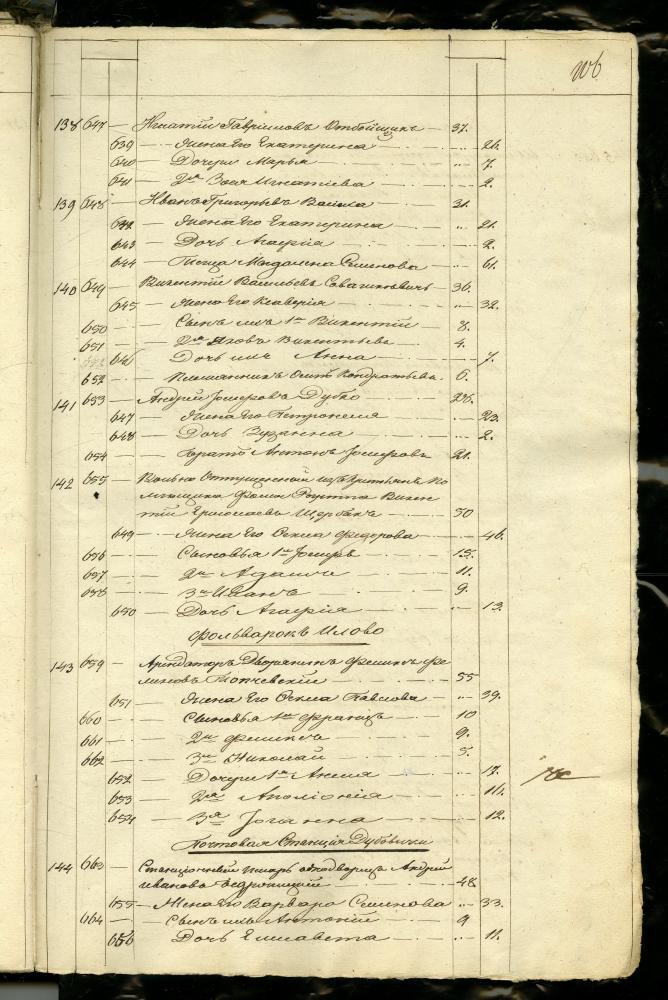 138 647 — Игнатій Гавриловъ — 37.
639 — Жена его Екатерина — 26.
640 — Дочери Марья — 7.
641 — 2я Зося Игнатіева — 2.
139 648 — Иванъ Григорьевъ — 31.
Жена его Екатерина — 21.
643 — Дочь Агафія — 2.
644 — Теща Магдалина Семенова — 61.
140 649 — Викентій Васильевъ — 36.
645 — Жена его Ксаверія — 32.
650 — Сынъ ихъ 1й Викентій — 8.
651 — 2й Яковъ Викентьевъ — 4.
646 — Дочь ихъ Анна — 7.
652 — Племянникъ Осипъ Кондратьевъ. 6.
141 653 — Андрей Іосифовъ Дубко — 26.
647 — Жена его Петронеля — 23.
648 — Дочь Зузанна — 2.
654 — Братъ Антонъ Іосифовъ 21.
142 655 — Вольно Отпущенный изъ Крестьянъ По
мѣщика Викен
тій — 50
649 — Жена его Федорова — 46.
656 — Сыновья 1й Іосифъ — 15.
657 — 2й Адамъ — 11.
658 — 3й Иванъ — 9.
650 — Дочь Агафія — 13
Фольварокъ Илово
143 659 — Арендаторъ Дворянинъ Феликсъ Фе
ликсовъ — 55
651 — Жена его Павлова — 39.
660 — Сыновья 1й Францъ — 10
661 — 2й Феликсъ — 9.
662 — 3й Николай — 5.
652 — Дочери 1я Анеля — 17.
653 — 2я Аполіонія — 14.
654 — 3я Іоганна — 12.
Почтовая Станція Дубовики
144 663 — Станціонный писарь однодворецъ Андрей
Ивановъ — 48
655 — Жена его Варвара Семенова — 33.
664 — Сынъ ихъ Антоній — 9
656 Дочь Елисавета — 11.